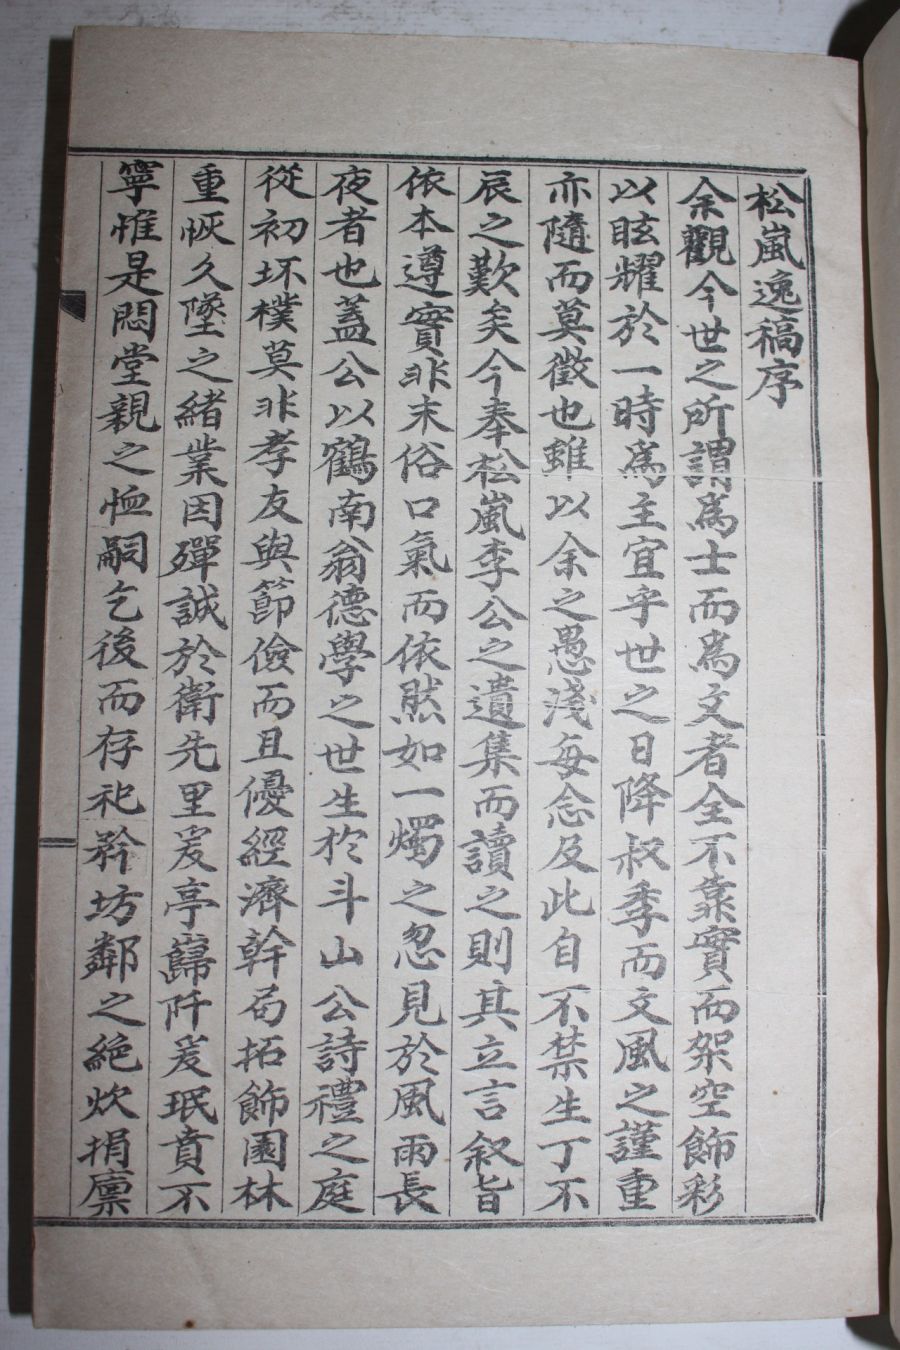 松嵐逸稿序
余觀今世之所謂爲士而爲文者全不靠實而架空飾彩
以眩耀於一時爲主宜乎世之日降叔季而文風之謹重
亦隨而莫徵也雖以余之愚淺每念及此自不禁生丁不
辰之歎矣今奉松嵐李公之遺集而讀之則其立言叙旨
依本遵實非末俗口氣而依然如一燭之忽見於風雨長
夜者也蓋公以鶴南翁德學之世生於斗山公詩禮之庭
從初坯樸莫非孝友與節儉而且優經濟幹局拓飾園林
重恢久墜之緒業因殫誠於衛先里爰亭巋阡爰珉賁不
寧惟是悶堂親之恤嗣乞後而存祀矜坊鄰之絶炊捐廩